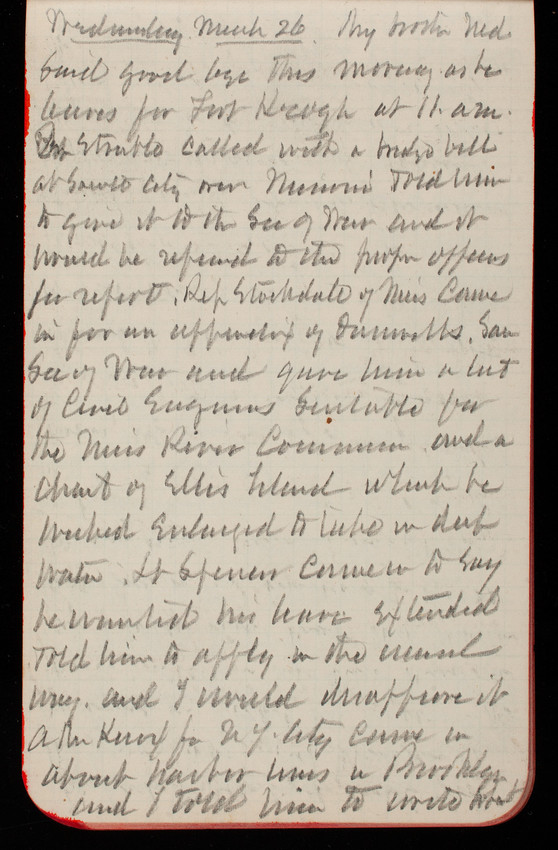 Wednesday March 26. My brother Ned
said good bye this morning as he
leaves for Fort Keogh at 11. a.m.
Rep Struble called with a bridge bill
at Sioux City over Missouri Told him
to give it to the Sec of War and it
would be referred to the proper officers
for report. Rep Stockdale of Miss Came
in for an appendix of . Saw
Sec of War and gave him a list
of Civil Engineers Suitable for
the Miss River Commission and a
Chart of Ellis Island which he
wished Enlarged to take in deep
water. Lt Spencer Came in to Say
he wanted his leave Extended
Told him to apply in the usual
way. and I would disapprove it
A Mr Knox fr N.Y. City came in
about harbor lines in Brooklyn
and I told him to write what